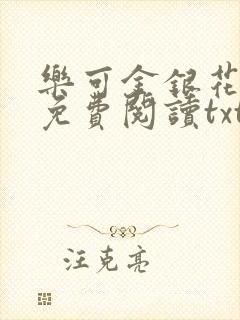 樂可金銀花
免費閱讀txt
汪克亮